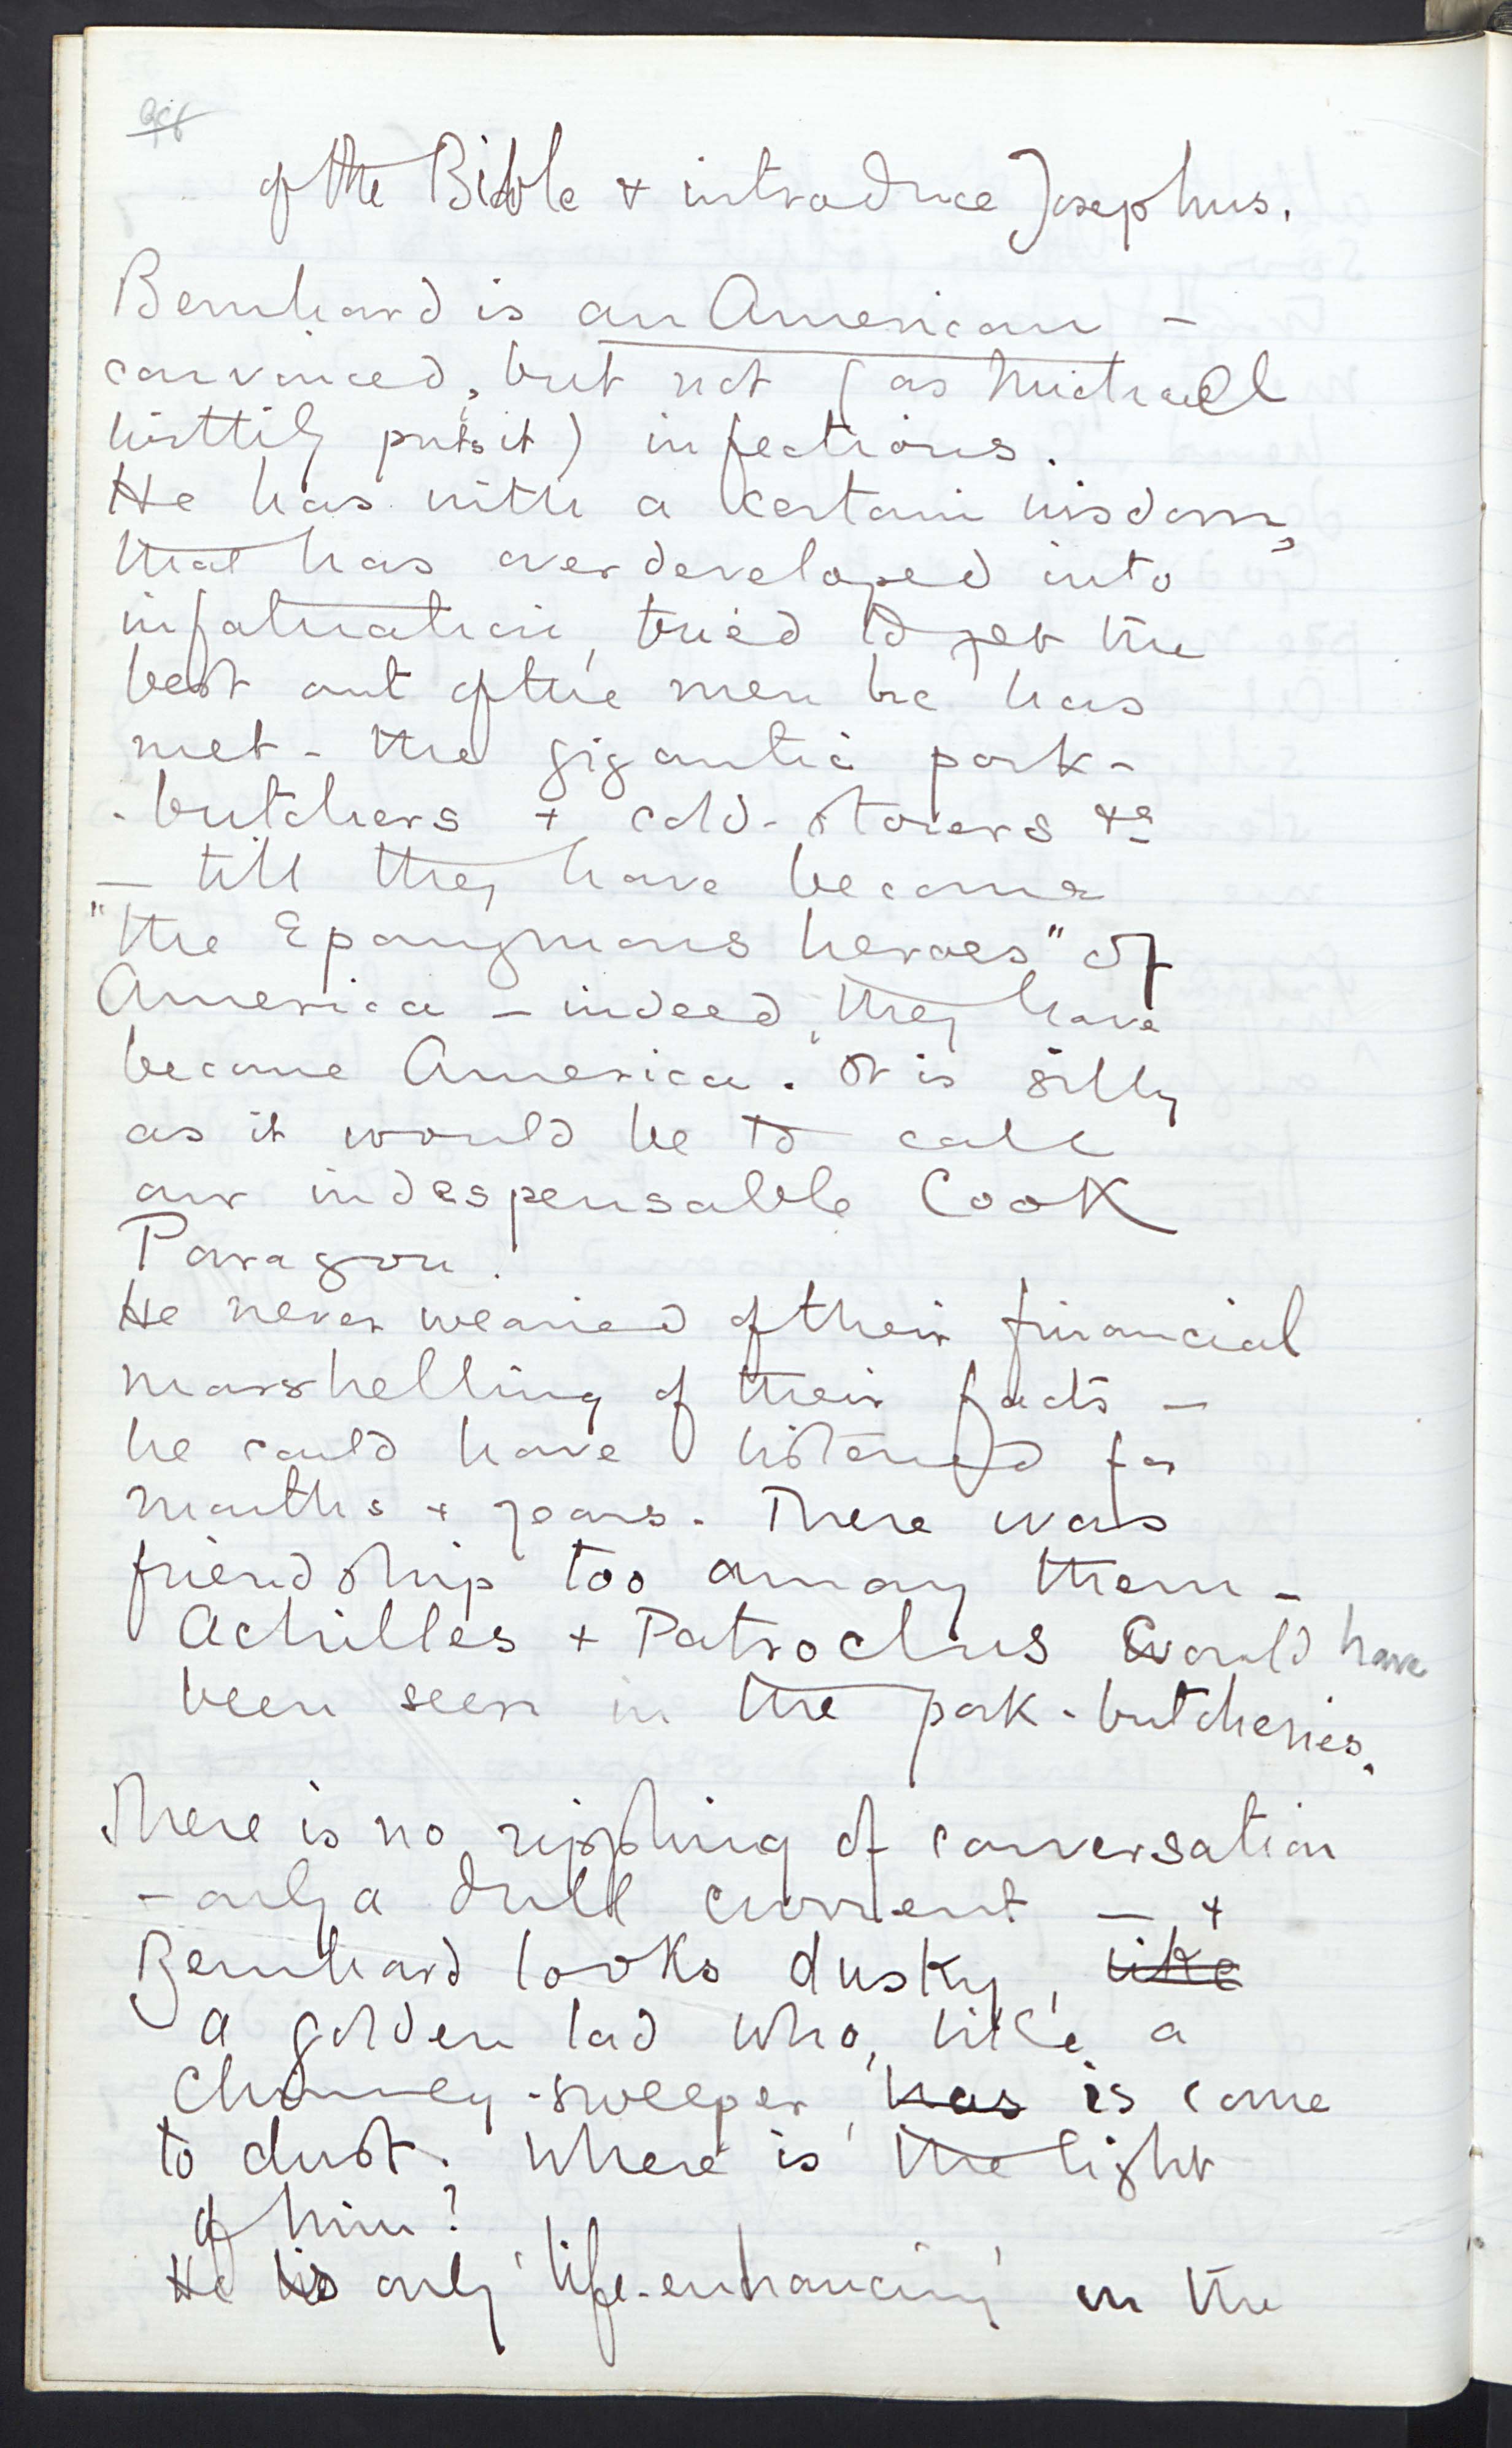 of the Bible + introduce Josephus.
Bernhard is an American –
convinced, but not (as Michael
wittily puts it) infectious.
He has with a certain wisdom,
that has overdeveloped into
infatuation, tried to get the
best out of the men he has
met – the gigantic pork-
-butchers + cold-storers &c
– till they have become
"the Eponymous heroes" of
America – indeed, they have
become America. It is silly
as it would be to call
our indespensable Cook
Paragon.
He never wearied of their financial
marshelling of their facts –
he could have listened for
months + years. There was
friendship too among them –
Achilles + Patroclus could have
been seen in the pork-butcheries.
There is no rippling of conversation
– only a dull current – +
Bernhard looks dusky, like
a golden lad who, like a
Chimney-sweeper, has is come
to dust. Where is the light
of him?
He is only 'life-enhancing' in the